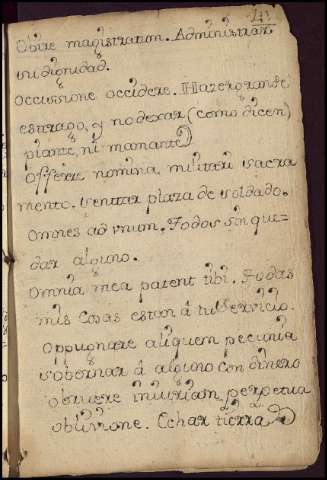 Obire magistratum. Administrar
su dignidad.
occissione occidere. Hazer grande
estrago, y no dexar (como dicen)
piante, ni mamante
offerre nomina militari sacra
mento. sentar plaza de soldado.
omnes ad vnum. Todos sin que-
dar alguno.
Omnia mea patent tibi. Todas
mis Cosas estan á tu servicio.
oppugnare aliquem pecunia
sobornar á alguno con dinero
obruere iniuriam perpetua
oblivione. Echar tierra